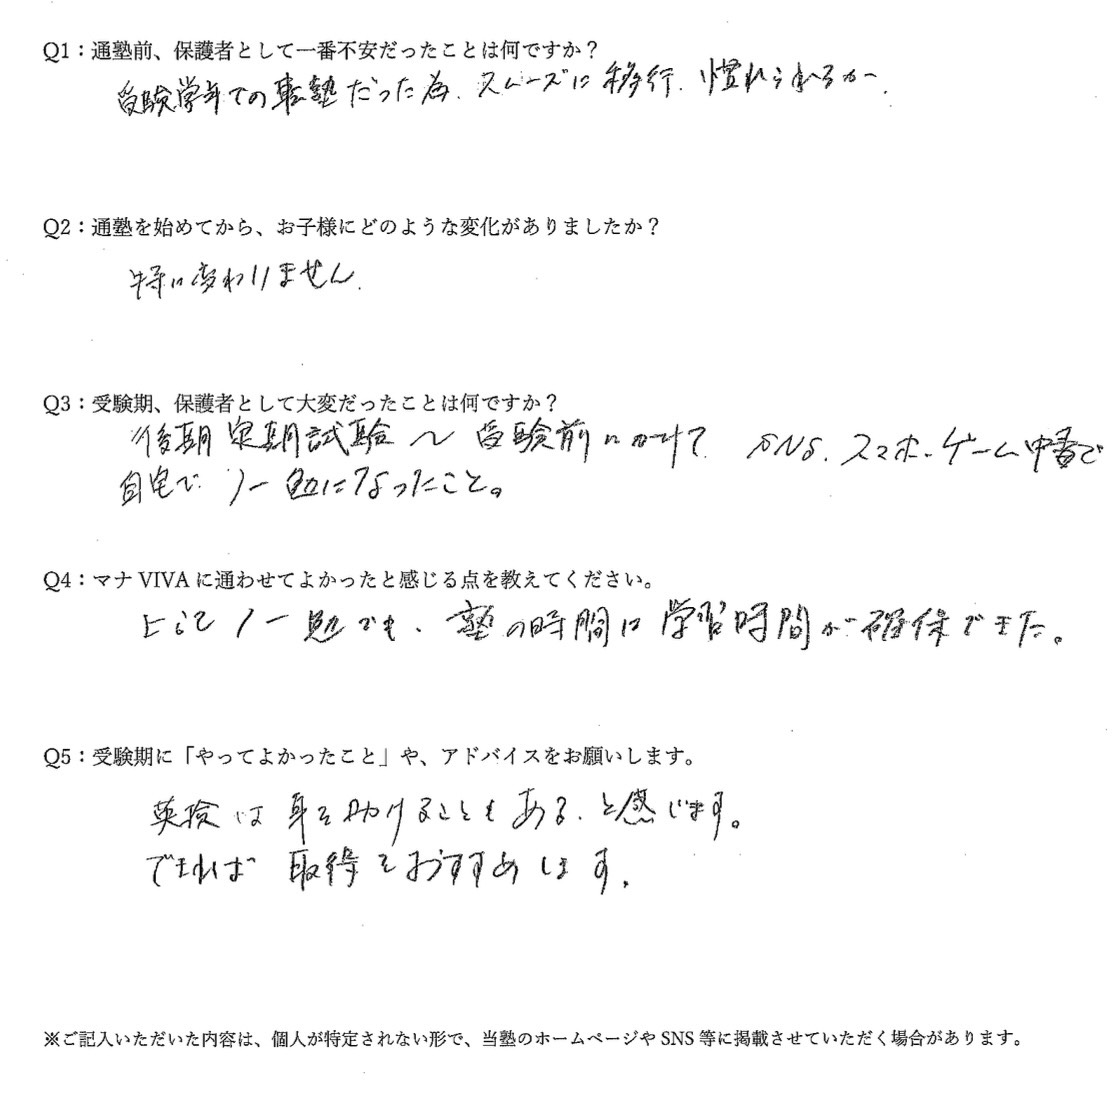 Q1：通塾前、保護者として一番不安だったことは何ですか？
受験学年での転塾だった為、スムーズに移行、慣れられるか、
Q2：通塾を始めてから、お子様にどのような変化がありましたか？
特に変わりません、
Q3：受験期、保護者として大変だったことは何ですか？
後期定期試験〜受験前にかけて、SNS、スマホ、ゲーム中毒で
自宅で、ノー勉になったこと。
Q4：マナVIVAに通わせてよかったと感じる点を教えてください。
上記ノー勉でも、塾の時間は学習時間が確保できた。
Q5：受験期に「やってよかったこと」や、アドバイスをお願いします。
英検は身を助けることもある、と感じます。
できれば取得をおすすめします。
※ご記入いただいた内容は、個人が特定されない形で、当塾のホームページやSNS等に掲載させていただく場合があります。